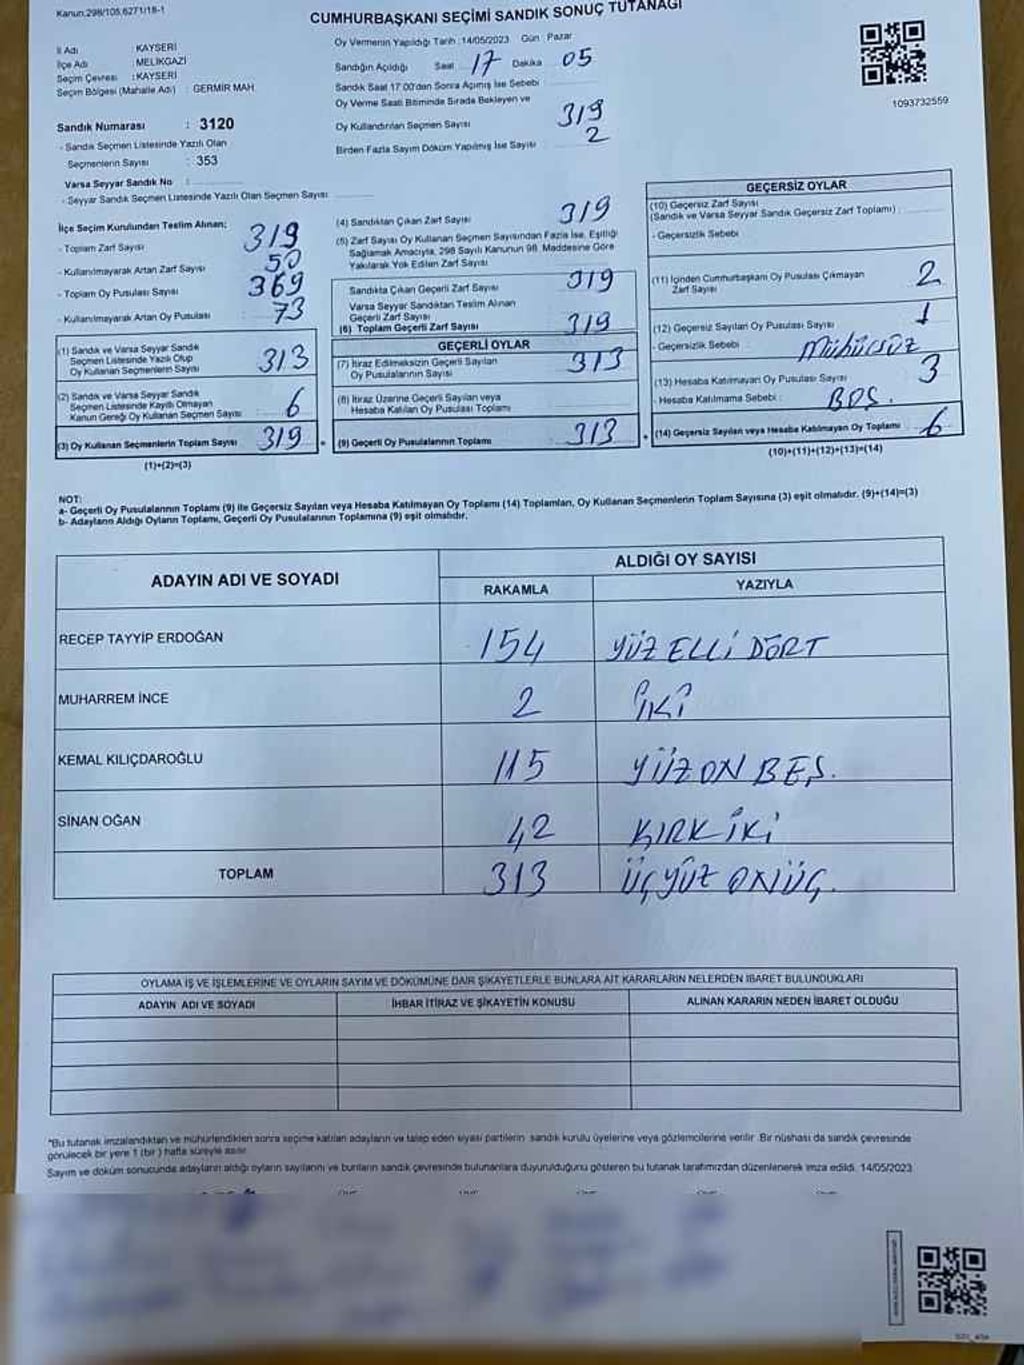 Kanun:298/105,6271/18-1
CUMHURBAŞKANI SEÇİMİ SANDIK SONUÇ TUTANAĞI
İl Adı : KAYSERİ
İlçe Adı : MELİKGAZİ
Seçim Çevresi : KAYSERİ
Seçim Bölgesi (Mahalle Adı) : GERMİR MAH
Sandık Numarası : 3120
- Sandık Seçmen Listesinde Yazılı Olan
Seçmenlerin Sayısı : 353
Varsa Seyyar Sandık No :
- Seyyar Sandık Seçmen Listesinde Yazılı Olan Seçmen Sayısı
Oy Vermenin Yapıldığı Tarih :14/05/2023 Gün : Pazar
Sandığın Açıldığı Saat 17 Dakika 05
Sandık Saat 17:00'dan Sonra Açılmış İse Sebebi
Oy Verme Saati Bitiminde Sırada Bekleyen ve
Oy Kullandırılan Seçmen Sayısı 319
Birden Fazla Sayım Döküm Yapılmış İse Sayısı 2
1093732559
İlçe Seçim Kurulundan Teslim Alınan;
- Toplam Zarf Sayısı 319
- Kullanılmayarak Artan Zarf Sayısı 50
- Toplam Oy Pusulası Sayısı 369
- Kullanılmayarak Artan Oy Pusulası : 73
(1) Sandık ve Varsa Seyyar Sandık
Seçmen Listesinde Yazılı Olup
Oy Kullanan Seçmenlerin Sayısı 313
(2) Sandık ve Varsa Seyyar Sandık
Seçmen Listesinde Kayıtlı Olmayan
Kanun Gereği Oy Kullanan Seçmen Sayısı : 6
(3) Oy Kullanan Seçmenlerin Toplam Sayısı 319
(1)+(2)=(3)
(4) Sandıktan Çıkan Zarf Sayısı 319
(5) Zarf Sayısı Oy Kullanan Seçmen Sayısından Fazla İse, Eşitliği
Sağlamak Amacıyla, 298 Sayılı Kanunun 98. Maddesine Göre
Yakılarak Yok Edilen Zarf Sayısı
Sandıkta Çıkan Geçerli Zarf Sayısı 319
Varsa Seyyar Sandıktan Teslim Alınan
Geçerli Zarf Sayısı
(6) Toplam Geçerli Zarf Sayısı 319
GEÇERLİ OYLAR
(7) İtiraz Edilmeksizin Geçerli Sayılan
Oy Pusulalarının Sayısı 313
(8) İtiraz Üzerine Geçerli Sayılan veya
Hesaba Katılan Oy Pusulası Toplamı
(9) Geçerli Oy Pusulalarının Toplamı 313
GEÇERSİZ OYLAR
(10) Geçersiz Zarf Sayısı
(Sandık ve Varsa Seyyar Sandık Geçersiz Zarf Toplamı) :
- Geçersizlik Sebebi
(11) İçinden Cumhurbaşkanı Oy Pusulası Çıkmayan
Zarf Sayısı 2
(12) Geçersiz Sayılan Oy Pusulası Sayısı 1
- Geçersizlik Sebebi : Mühürsüz
(13) Hesaba Katılmayan Oy Pusulası Sayısı 3
- Hesaba Katılmama Sebebi : BOŞ.
(14) Geçersiz Sayılan veya Hesaba Katılmayan Oy Toplamı 6
(10)+(11)+(12)+(13)=(14)
NOT:
a- Geçerli Oy Pusulalarının Toplamı (9) ile Geçersiz Sayılan veya Hesaba Katılmayan Oy Toplamı (14) Toplamları, Oy Kullanan Seçmenlerin Toplam Sayısına (3) eşit olmalıdır. (9)+(14)=(3)
b- Adayların Aldığı Oyların Toplamı, Geçerli Oy Pusulalarının Toplamına (9) eşit olmalıdır.
ADAYIN ADI VE SOYADI ALDIĞI OY SAYISI
RAKAMLA YAZIYLA
RECEP TAYYİP ERDOĞAN 154 YÜZ ELLİ DÖRT
MUHARREM İNCE 2 İKİ
KEMAL KILIÇDAROĞLU 115 YÜZ ON BEŞ.
SİNAN OĞAN 42 KIRK İKİ
TOPLAM 313 ÜÇYÜZ ONÜÇ.
OYLAMA İŞ VE İŞLEMLERİNE VE OYLARIN SAYIM VE DÖKÜMÜNE DAİR ŞİKAYETLERLE BUNLARA AİT KARARLARIN NELERDEN İBARET BULUNDUKLARI
ADAYIN ADI VE SOYADI İHBAR İTİRAZ VE ŞİKAYETİN KONUSU ALINAN KARARIN NEDEN İBARET OLDUĞU
*Bu tutanak imzalandıktan ve mühürlendikten sonra seçime katılan adayların ve talep eden siyasi partilerin sandık kurulu üyelerine veya gözlemcilerine verilir. Bir nüshası da sandık çevresinde
görülecek bir yere 1 (bir) hafta süreyle asılır.
Sayım ve döküm sonucunda adayların aldığı oyların sayılarını ve bunların sandık çevresinde bulunanlara duyurulduğunu gösteren bu tutanak tarafımızdan düzenlenerek imza edildi. 14/05/2023